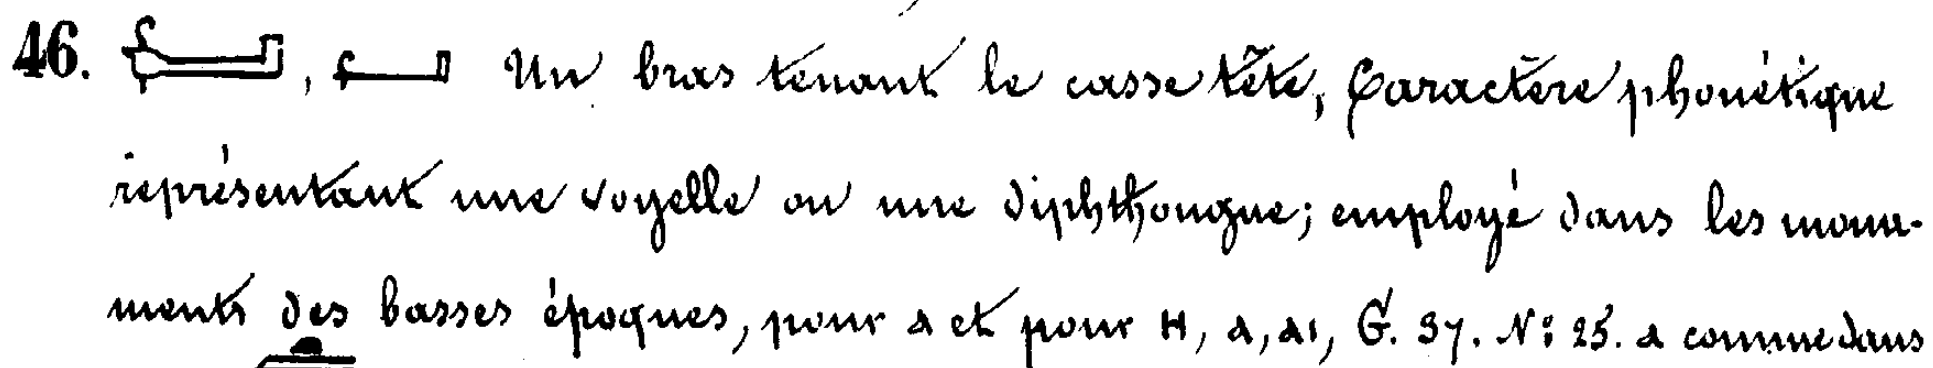 46. , Un bras tenant le casse tête, Caractère phonétique
représentant une voyelle ou une diphthongue; employé dans les monu-
ments des basses époques, pour ⲁ et pour ⲏ, ⲁ, ⲁⲓ, G. 37. Nº 25. ⲁ comme dans